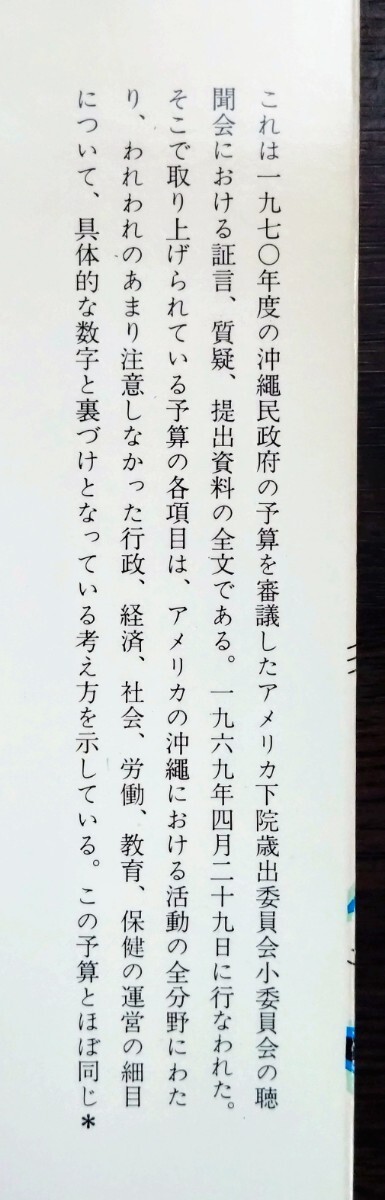 これは一九七〇年度の沖繩民政府の予算を審議したアメリカ下院歳出委員会小委員会の聴
聞会における証言、質疑、提出資料の全文である。一九六九年四月二十九日に行なわれた。
そこで取り上げられている予算の各項目は、アメリカの沖繩における活動の全分野にわた
り、われわれのあまり注意しなかった行政、経済、社会、労働、教育、保健の運営の細目
について、具体的な数字と裏づけとなっている考え方を示している。この予算とほぼ同じ*